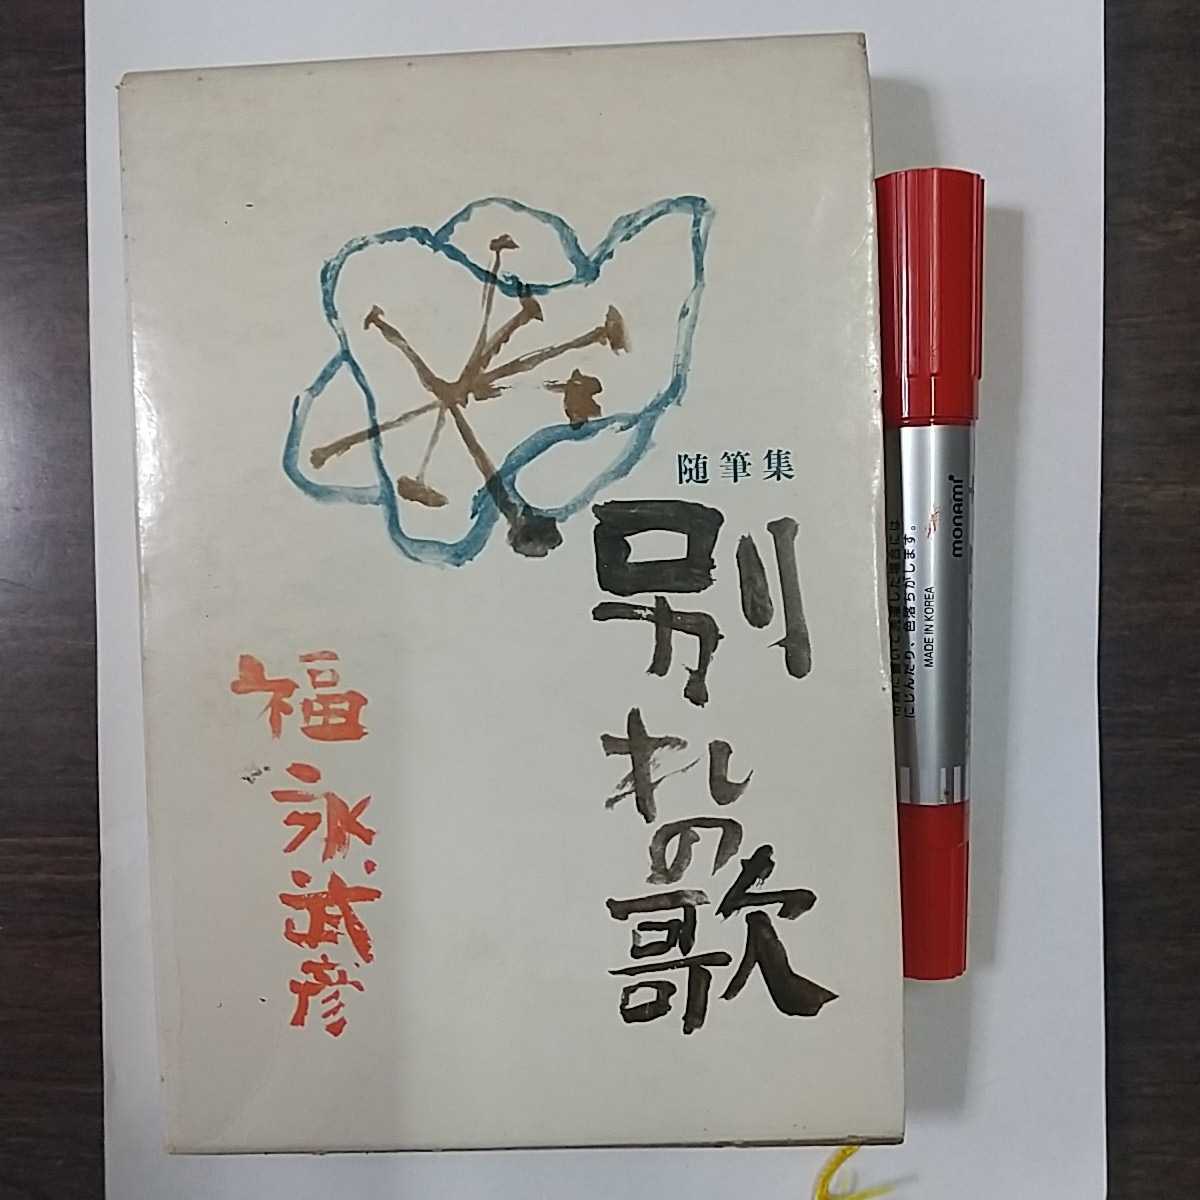 随筆集
別れの歌
福永武彦
monami
MADE IN KOREA
にじんだり、色落ちがします。